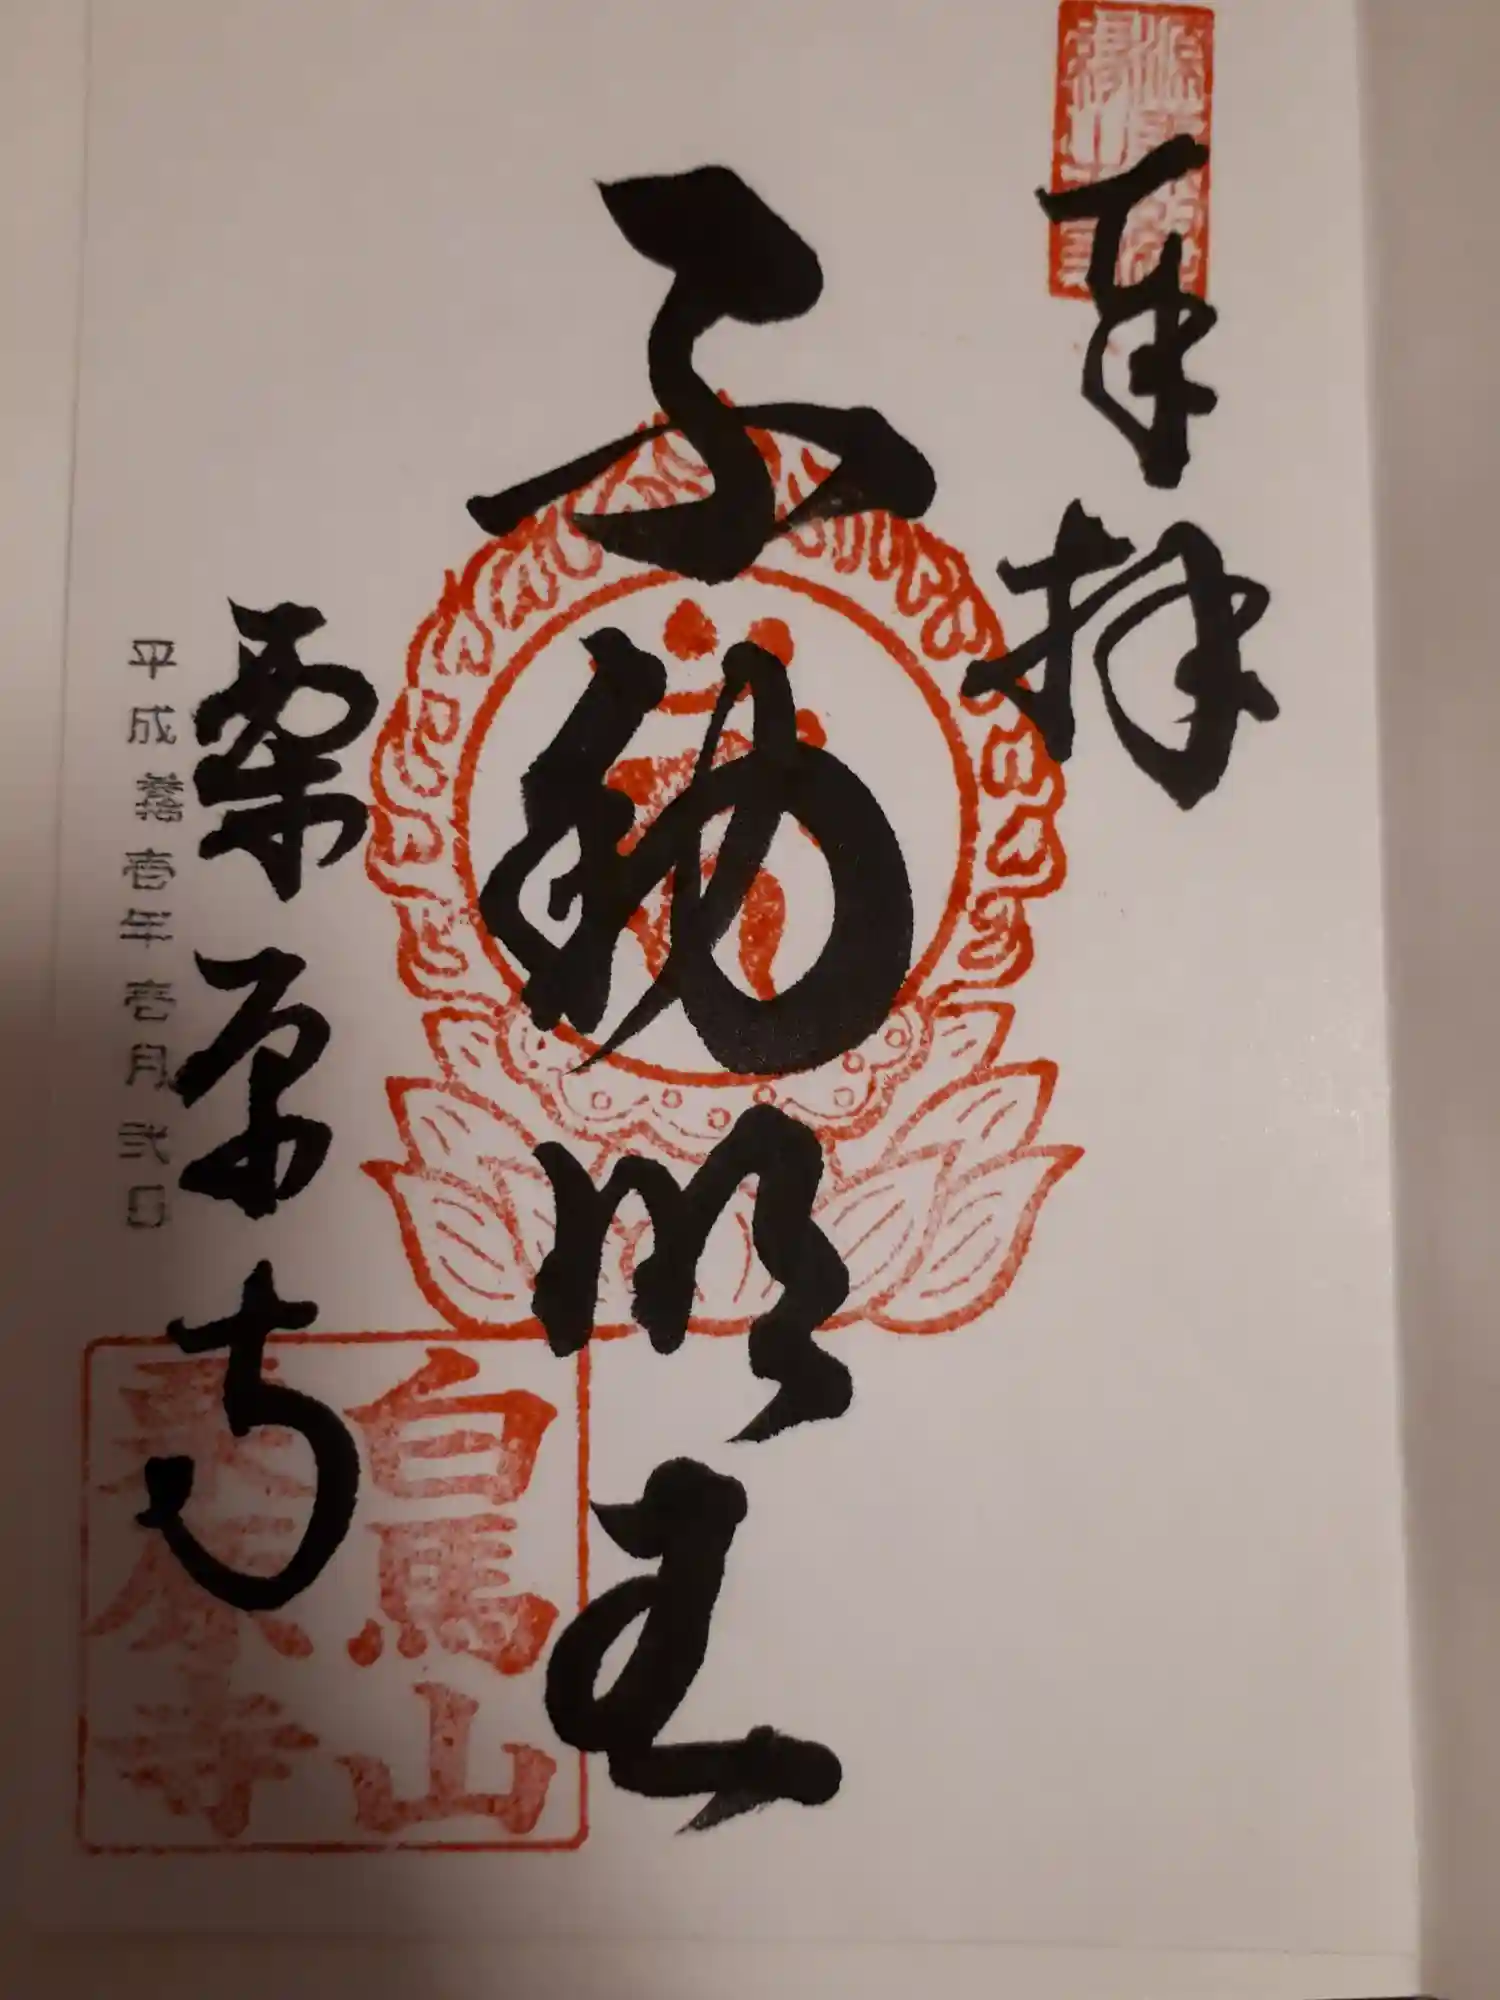 奉拝
不動明王
栗原寺
平成参拾壱年壱月弐日
白馬山
栗原寺